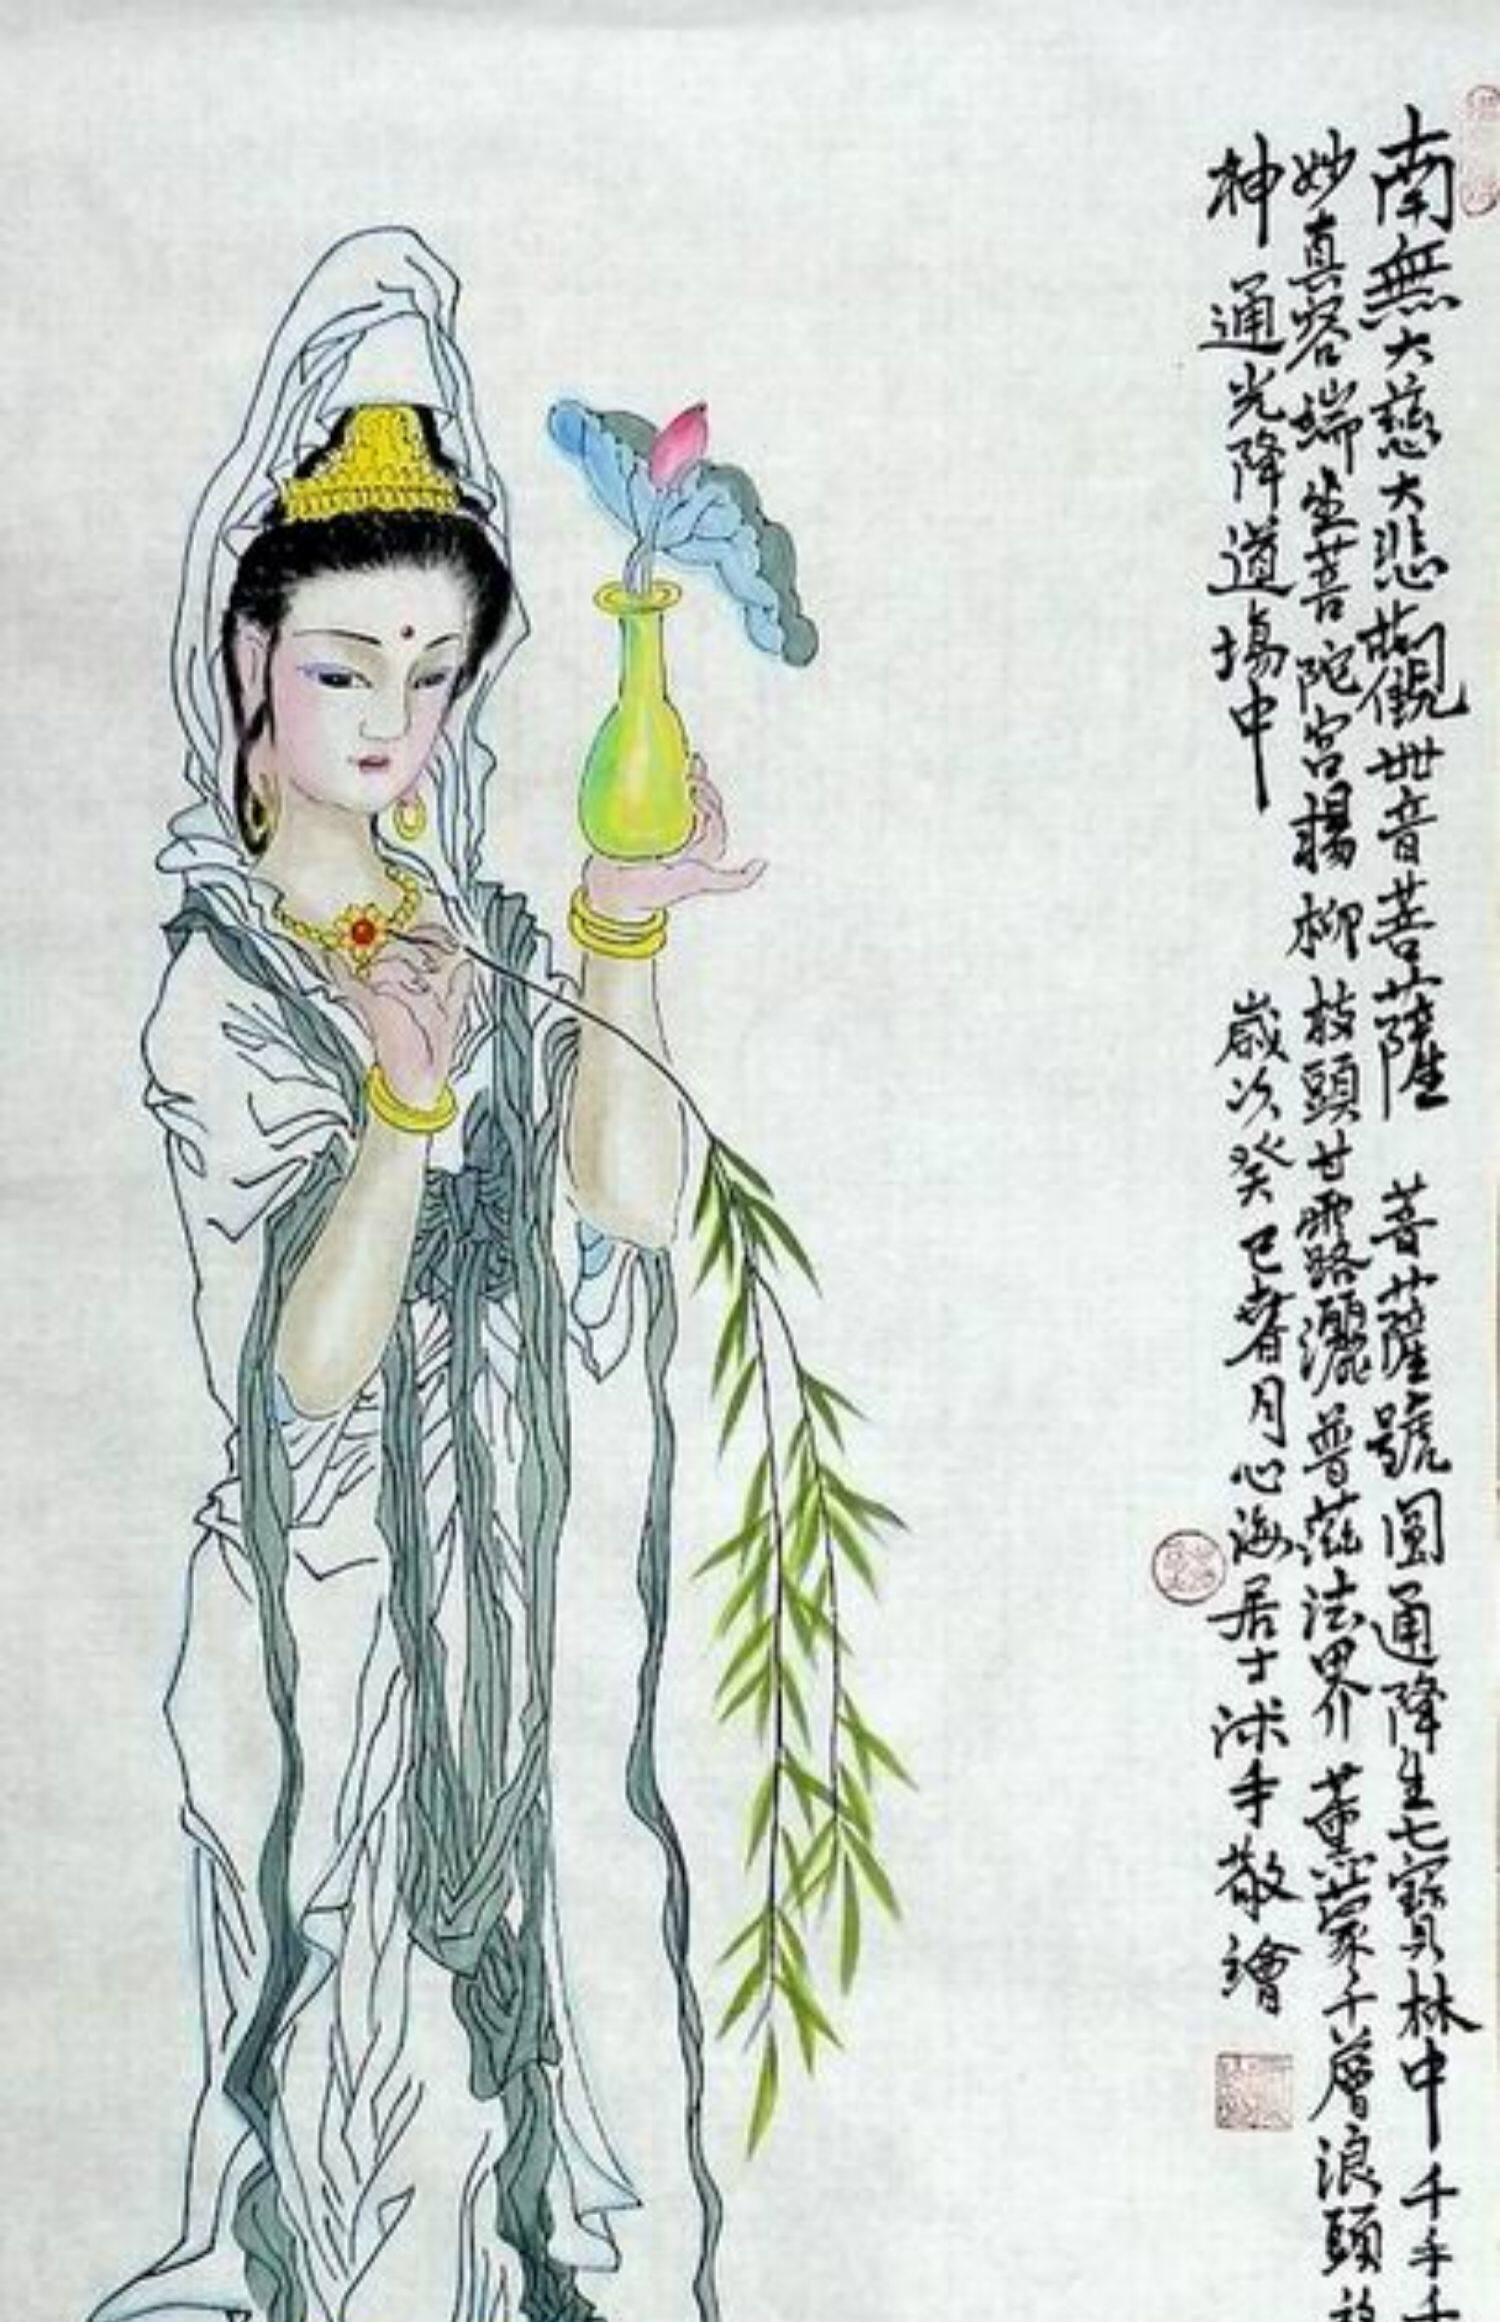 南無大慈大悲觀世音菩薩 菩薩號圓通降生七寶林中千手千
妙真容端坐菩陀宮楊柳枝頭甘露灑普滋法界薰蒙千層浪頭放
神通光降道場中
歲次癸巳春月心海居士沐手敬繪